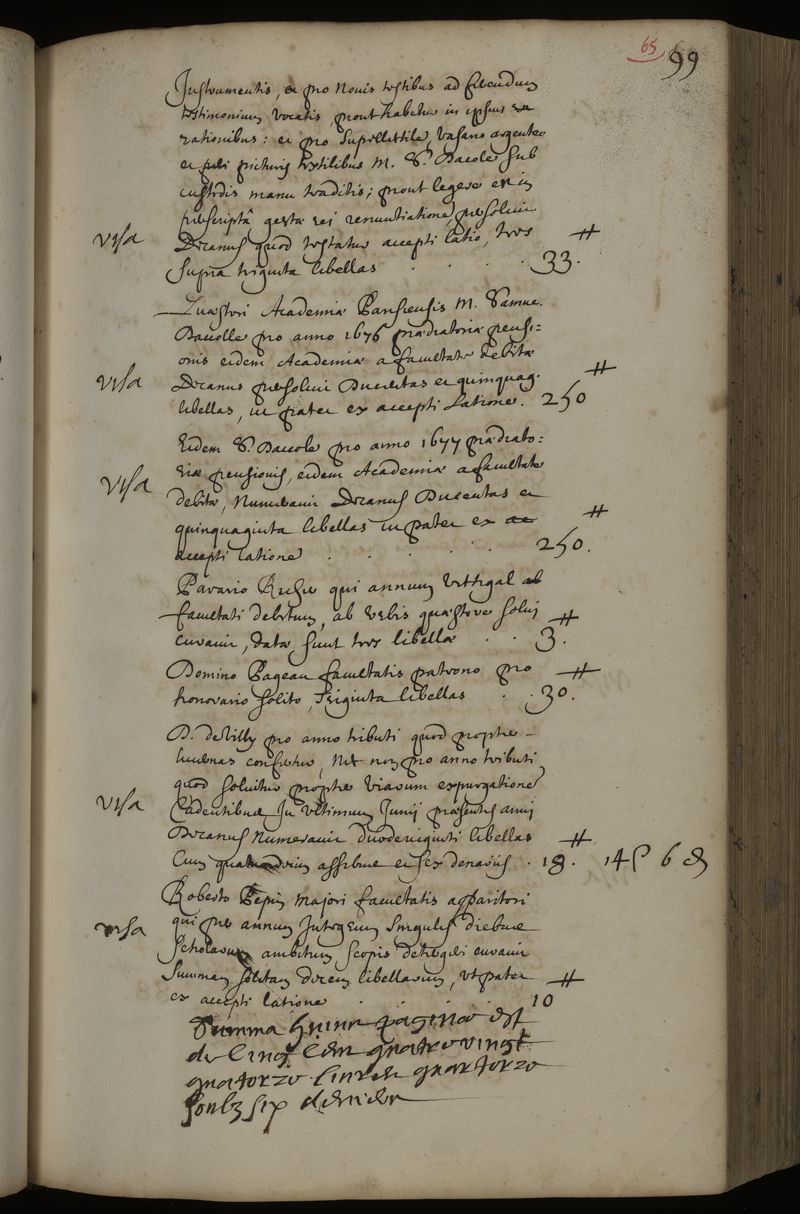 65
99
Instrumentis, et pro novis testibus ad ferendum
testimonium vocatis prout habetur in ipsius
rationibus: et pro supellectile, vasario argenteo
et picturis textilibus M. S. Dacole sub
custodis manu traditis; prout legere est in
praescripta gestae rei renuntiatione, persolvit
visa Decanus quod testatur accepti latio, tres
supra triginta libellas . . . . 33. ⌗
Quaestori Academiae Parisiensis M. Samue.
Daccolle pro anno 1676 praediatoriae pensi=
onis eidem Academiae a facultate debitae
visa Decanus persolvit Ducentas et quinquag.
libellas, ut patet ex accepti latione. 250 ⌗
Eidem S. Daccole pro anno 1677 praediato=
riae pensionis, eidem Academiae a facultate
visa debitae, Numeravit Decanus Ducentas et
quinquaginta libellas ut patet ex ac
accepti latione . . . . . 250. ⌗
Pavario Richer qui annum Vectigal ab
facultati debitum, ab urbis quaestore solvi
curavit, data sunt tres libellae . . 3. ⌗
Domino Pageau facultatis patrono pro
honorario solito, Triginta libellas . . 30. ⌗
D. deVilly pro anno tributi quod propter
lucernas confertur, Nec non pro anno tributi
quod solvitur propter viarum expurgatione
visa Cadentibus In Ultimum Junij praesentis anni
Decanus Numeravit duodeviginti libellas
Cum quatuordecim assibus et sex denariis . 18. ⌗ 14 ſ 6 d
Roberto Pepin Majori facultatis apparitori
visa qui per annum Integrum singulis diebus
scholarum ambitum scopis detergi curavit
summam solitam decem libellarum, ut patet
ex accepti latione . . . . 10 ⌗
Summa huius paginae est
de Cinq Cen quatrevingt
quatorze livres quatorze
soulz six denier